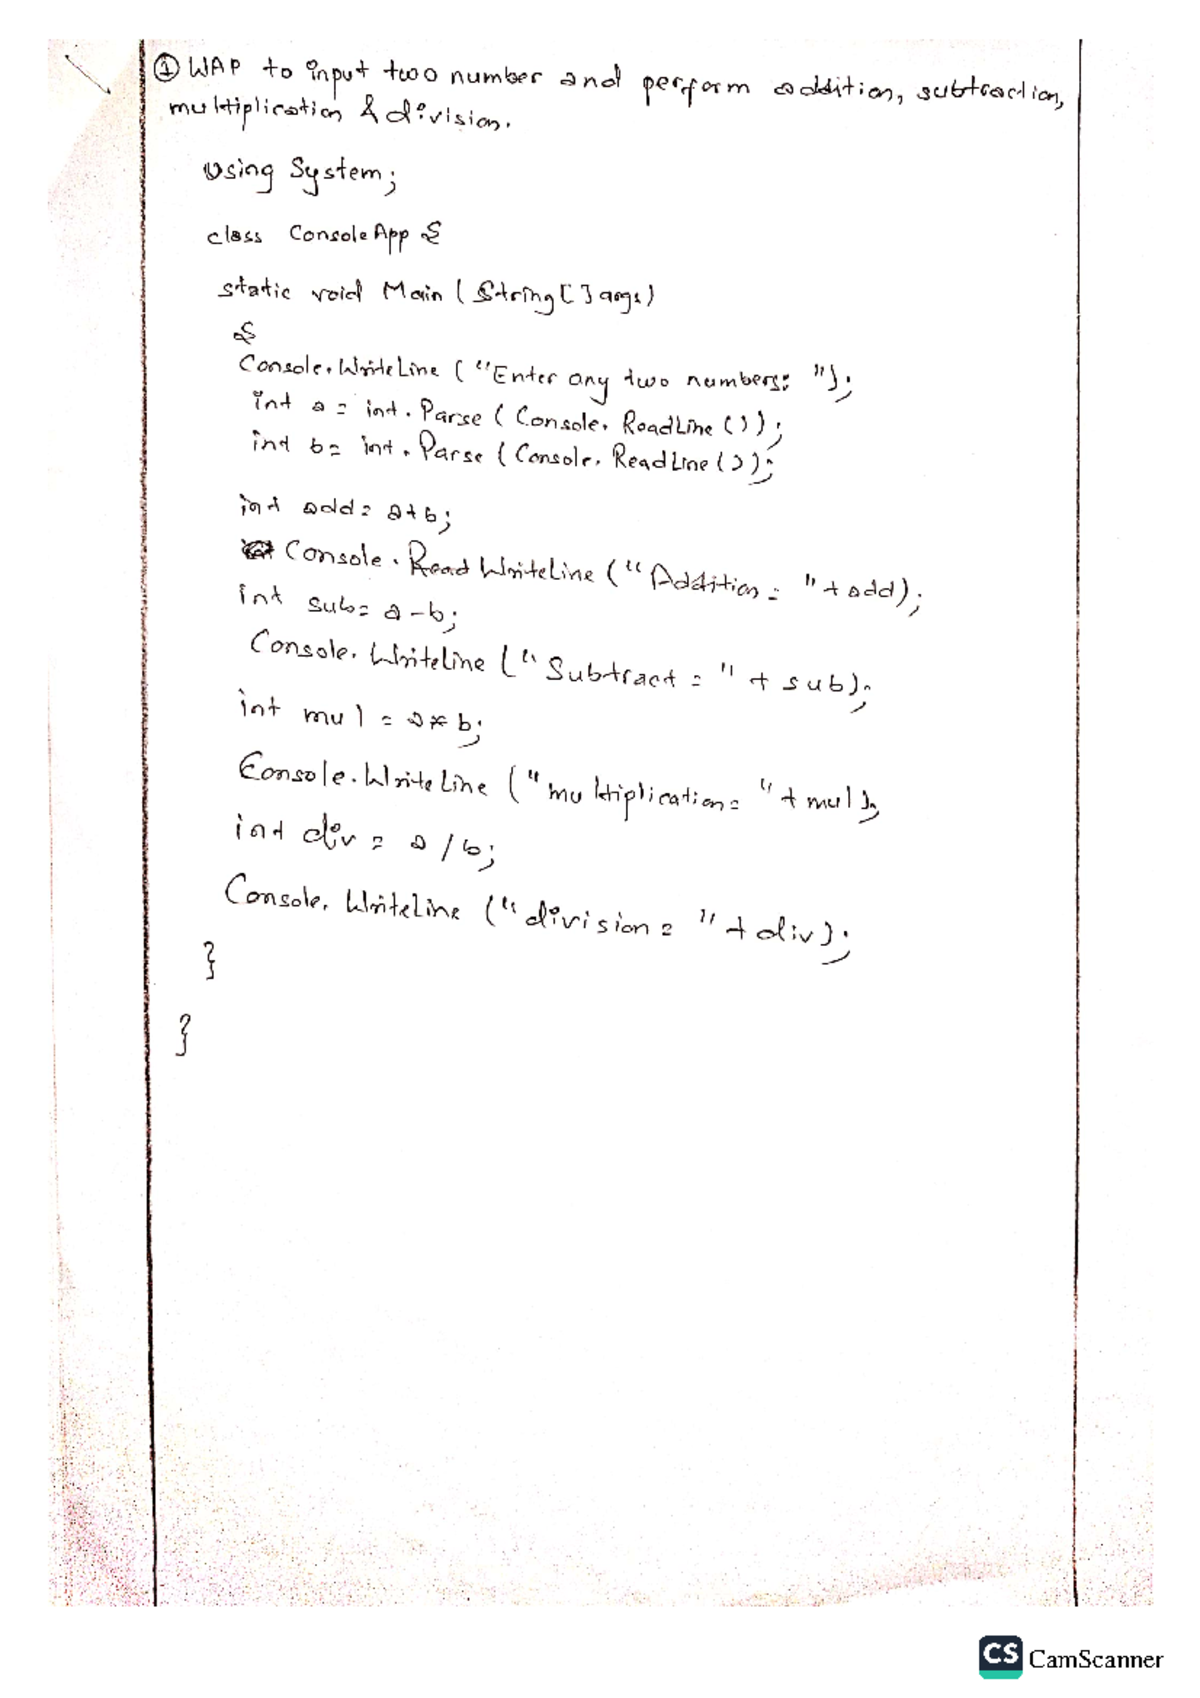 ① WAP to input two number and perform addition, subtraction,
multiplication & division.
Using System;
class ConsoleApp {
static void Main (String[] args)
{
Console.WriteLine ("Enter any two numbers: ");
int a = int.Parse (Console.ReadLine ());
int b = int.Parse (Console.ReadLine ());
int add = a+b;
Console.Read WriteLine ("Addition = "+ add);
int sub = a-b;
Console.WriteLine ("Subtract = " + sub);
int mul = a*b;
Console.WriteLine ("multiplication = "+ mul);
int div = a/b;
Console.WriteLine ("division = "+ div);
}
}
CS CamScanner